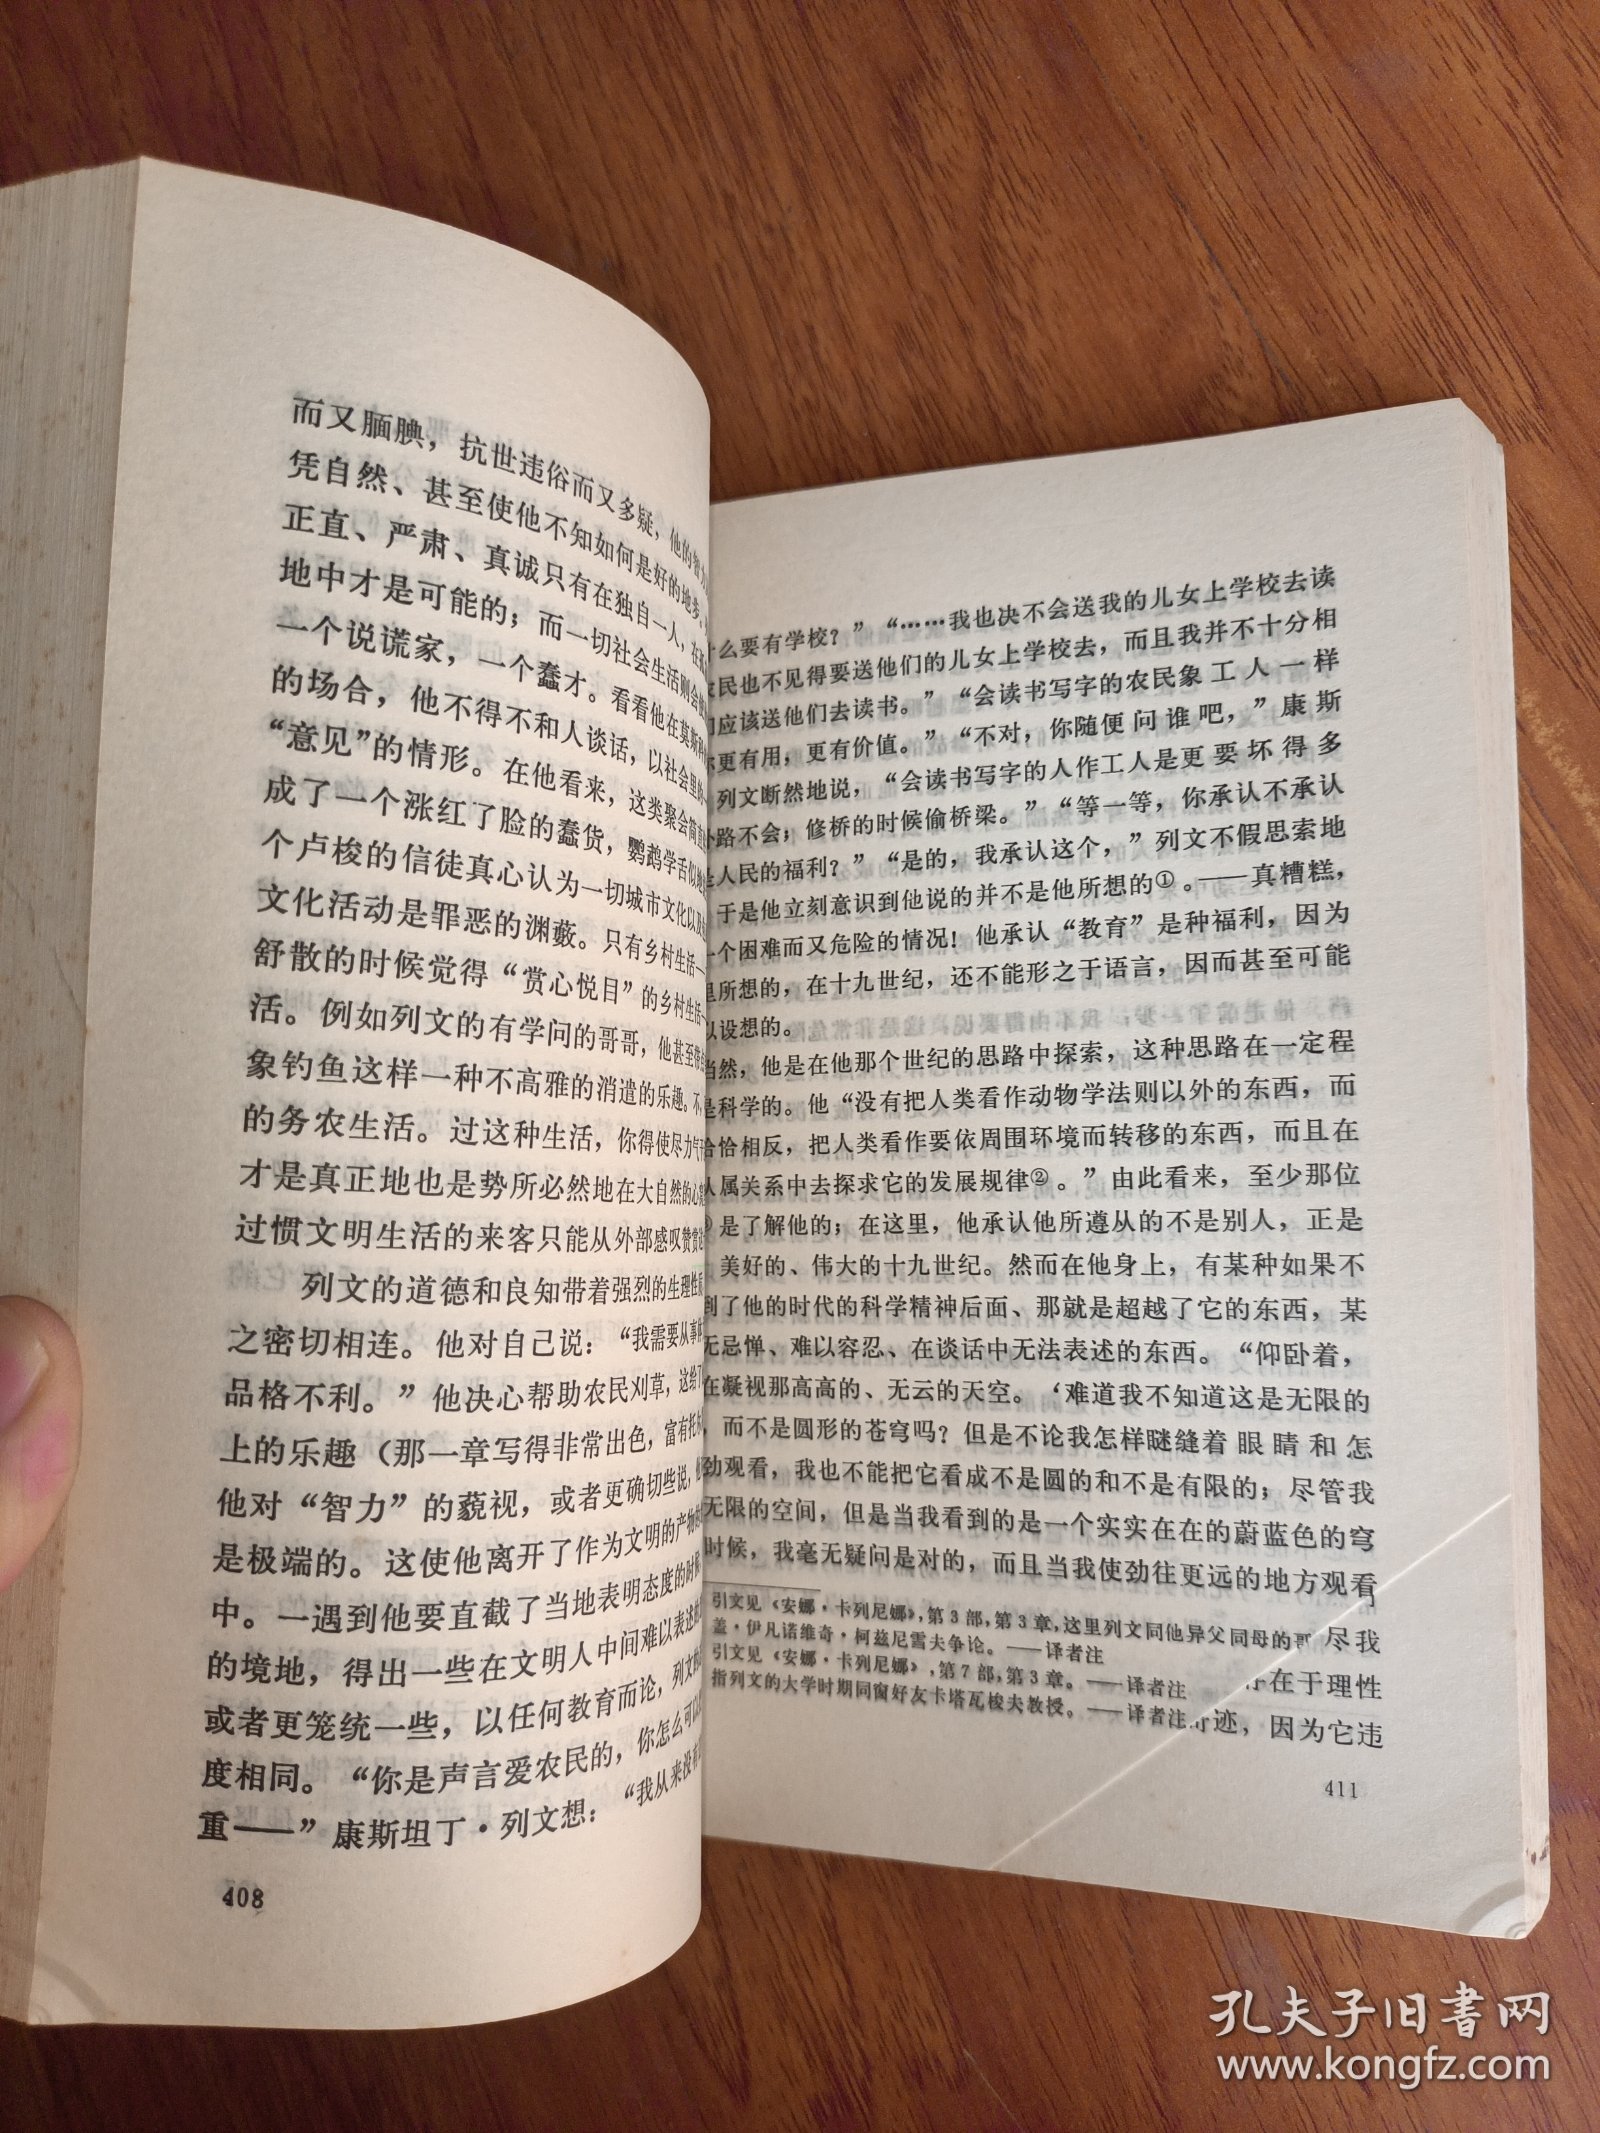 而又腼腆，抗世违俗而又多疑，他的智力
凭自然、甚至使他不知如何是好的地步。
正直、严肃、真诚只有在独自一人，在
地中才是可能的；而一切社会生活则会使
一个说谎家，一个蠢才。看看他在莫斯科
的场合，他不得不和人谈话，以社会里的
“意见”的情形。在他看来，这类聚会简直
成了一个涨红了脸的蠢货，鹦鹉学舌似地
个卢梭的信徒真心认为一切城市文化以及
文化活动是罪恶的渊薮。只有乡村生活—
舒散的时候觉得“赏心悦目”的乡村生活—
活。例如列文的有学问的哥哥，他甚至带
象钓鱼这样一种不高雅的消遣的乐趣。不
的务农生活。过这种生活，你得使尽力气
才是真正地也是势所必然地在大自然的心
过惯文明生活的来客只能从外部感叹赞赏
列文的道德和良知带着强烈的生理性质
之密切相连。他对自己说：“我需要从事
品格不利。”他决心帮助农民刈草，这给了
上的乐趣（那一章写得非常出色，富有托
他对“智力”的藐视，或者更确切些说，
是极端的。这使他离开了作为文明的产物
中。一遇到他要直截了当地表明态度的时候
的境地，得出一些在文明人中间难以表述
或者更笼统一些，以任何教育而论，列文
度相同。“你是声言爱农民的，你怎么可以
重——”康斯坦丁·列文想：“我从来没有
408
什么要有学校？”“……我也决不会送我的儿女上学校去读
农民也不见得要送他们的儿女上学校去，而且我并不十分相
们应该送他们去读书。”“会读书写字的农民象工人一样
更有用，更有价值。”“不对，你随便问谁吧，”康斯
列文断然地说，“会读书写字的人作工人是更要坏得多
路不会；修桥的时候偷桥梁。”“等一等，你承认不承认
是人民的福利？”“是的，我承认这个，”列文不假思索地
于是他立刻意识到他说的并不是他所想的①。——真糟糕，
一个困难而又危险的情况！他承认“教育”是种福利，因为
里所想的，在十九世纪，还不能形之于语言，因而甚至可能
以设想的。
当然，他是在他那个世纪的思路中探索，这种思路在一定程
是科学的。他“没有把人类看作动物学法则以外的东西，而
恰恰相反，把人类看作要依周围环境而转移的东西，而且在
从属关系中去探求它的发展规律②。”由此看来，至少那位
是了解他的；在这里，他承认他所遵从的不是别人，正是
美好的、伟大的十九世纪。然而在他身上，有某种如果不
到了他的时代的科学精神后面、那就是超越了它的东西，某
无忌惮、难以容忍、在谈话中无法表述的东西。“仰卧着，
在凝视那高高的、无云的天空。‘难道我不知道这是无限的
，而不是圆形的苍穹吗？但是不论我怎样瞇缝着眼睛和怎
劲观看，我也不能把它看成不是圆的和不是有限的；尽管我
无限的空间，但是当我看到的是一个实实在在的蔚蓝色的穹
时候，我毫无疑问是对的，而且当我使劲往更远的地方观看
引文见《安娜·卡列尼娜》，第3部，第3章，这里列文同他异父同母的哥
盖·伊凡诺维奇·柯兹尼雪夫争论。——译者注
引文见《安娜·卡列尼娜》，第7部，第3章。——译者注
指列文的大学时期同窗好友卡塔瓦梭夫教授。——译者注
尽我
存在于理性
奇迹，因为它违
411
孔夫子旧书网
www.kongfz.com